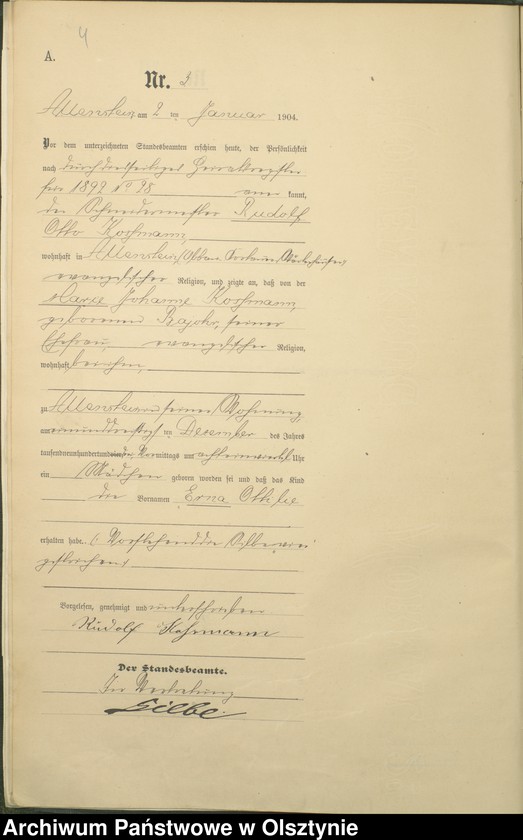 4
A.
Nr. 3
Allenstein am 2 ten Januar 1904.
Vor dem unterzeichneten Standesbeamten erschien heute, der Persönlichkeit
nach durch
für 1892 No 98 aner kannt,
der Schneidermeister Rudolf
Otto
wohnhaft in Allenstein,
evangelischer Religion, und zeigte an, daß von der
Marie Johanne
geborenen Bajohr, seiner
Ehefrau, evangelischer Religion,
wohnhaft bei ihm,
zu Allenstein in seiner Wohnung,
am einunddreißigsten Dezember des Jahres
tausendneunhundertunddrei Vormittags um Uhr
ein Mädchen geboren worden sei und daß das Kind
die Vornamen Erna Ottilie
erhalten habe. Vorstehend die Silbe
gestrichen
Vorgelesen, genehmigt und unterschrieben
Rudolf
Der Standesbeamte.
In Vertretung
Archiwum Państwowe w Olsztynie